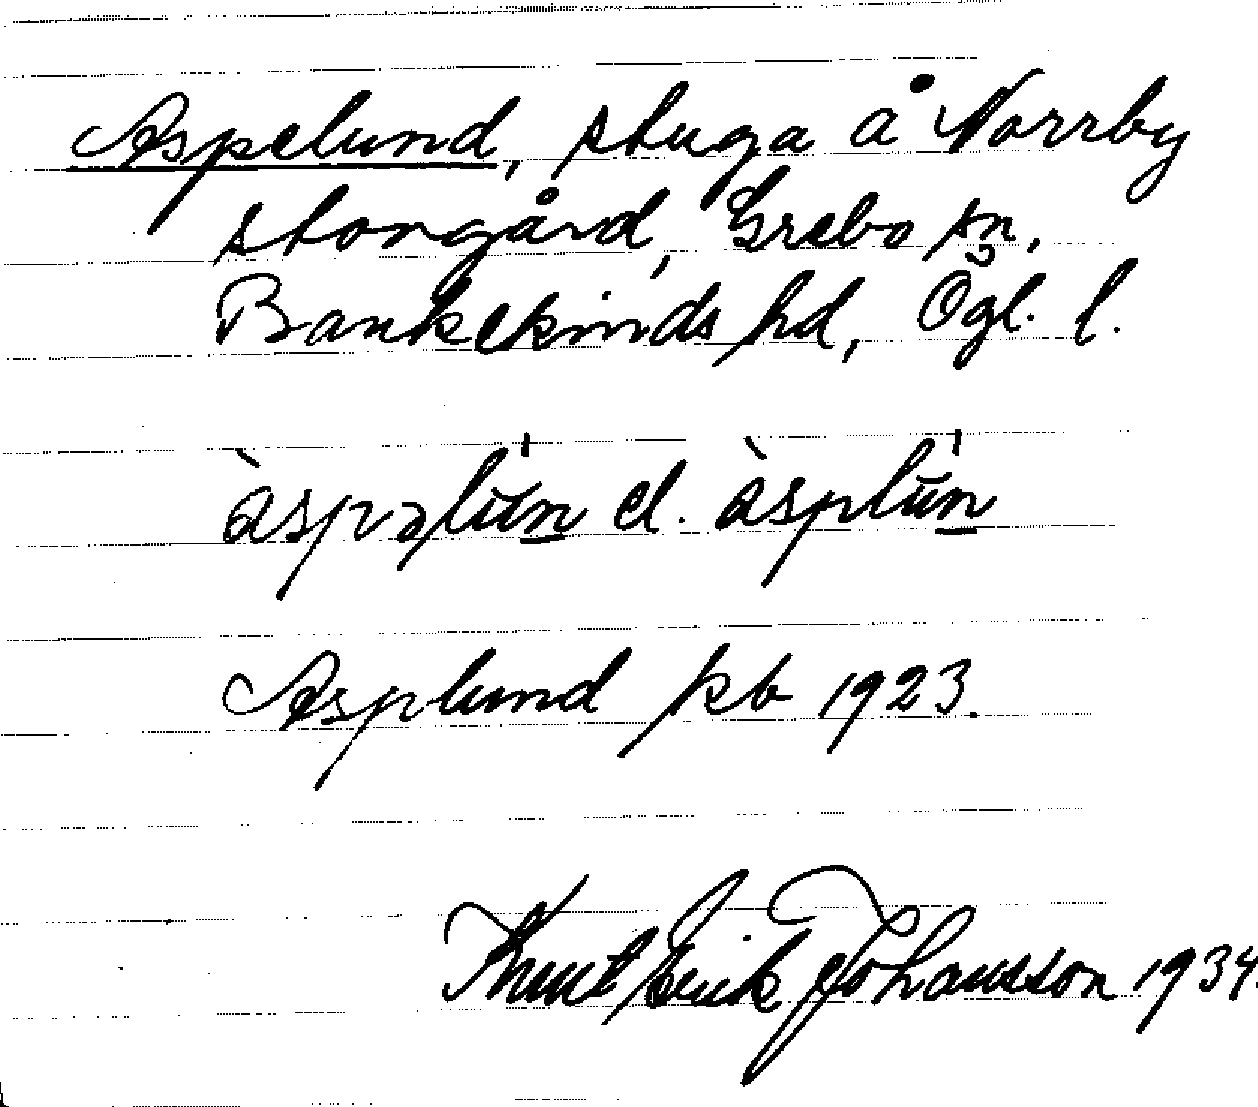 Aspelund, stuga å Norrby
storgård, Grebo sn,
Bankekinds hd, Ögl. l.
àspəlún el. àsplún
Asplund kb 1923.
Knut Erik Johansson 1934.